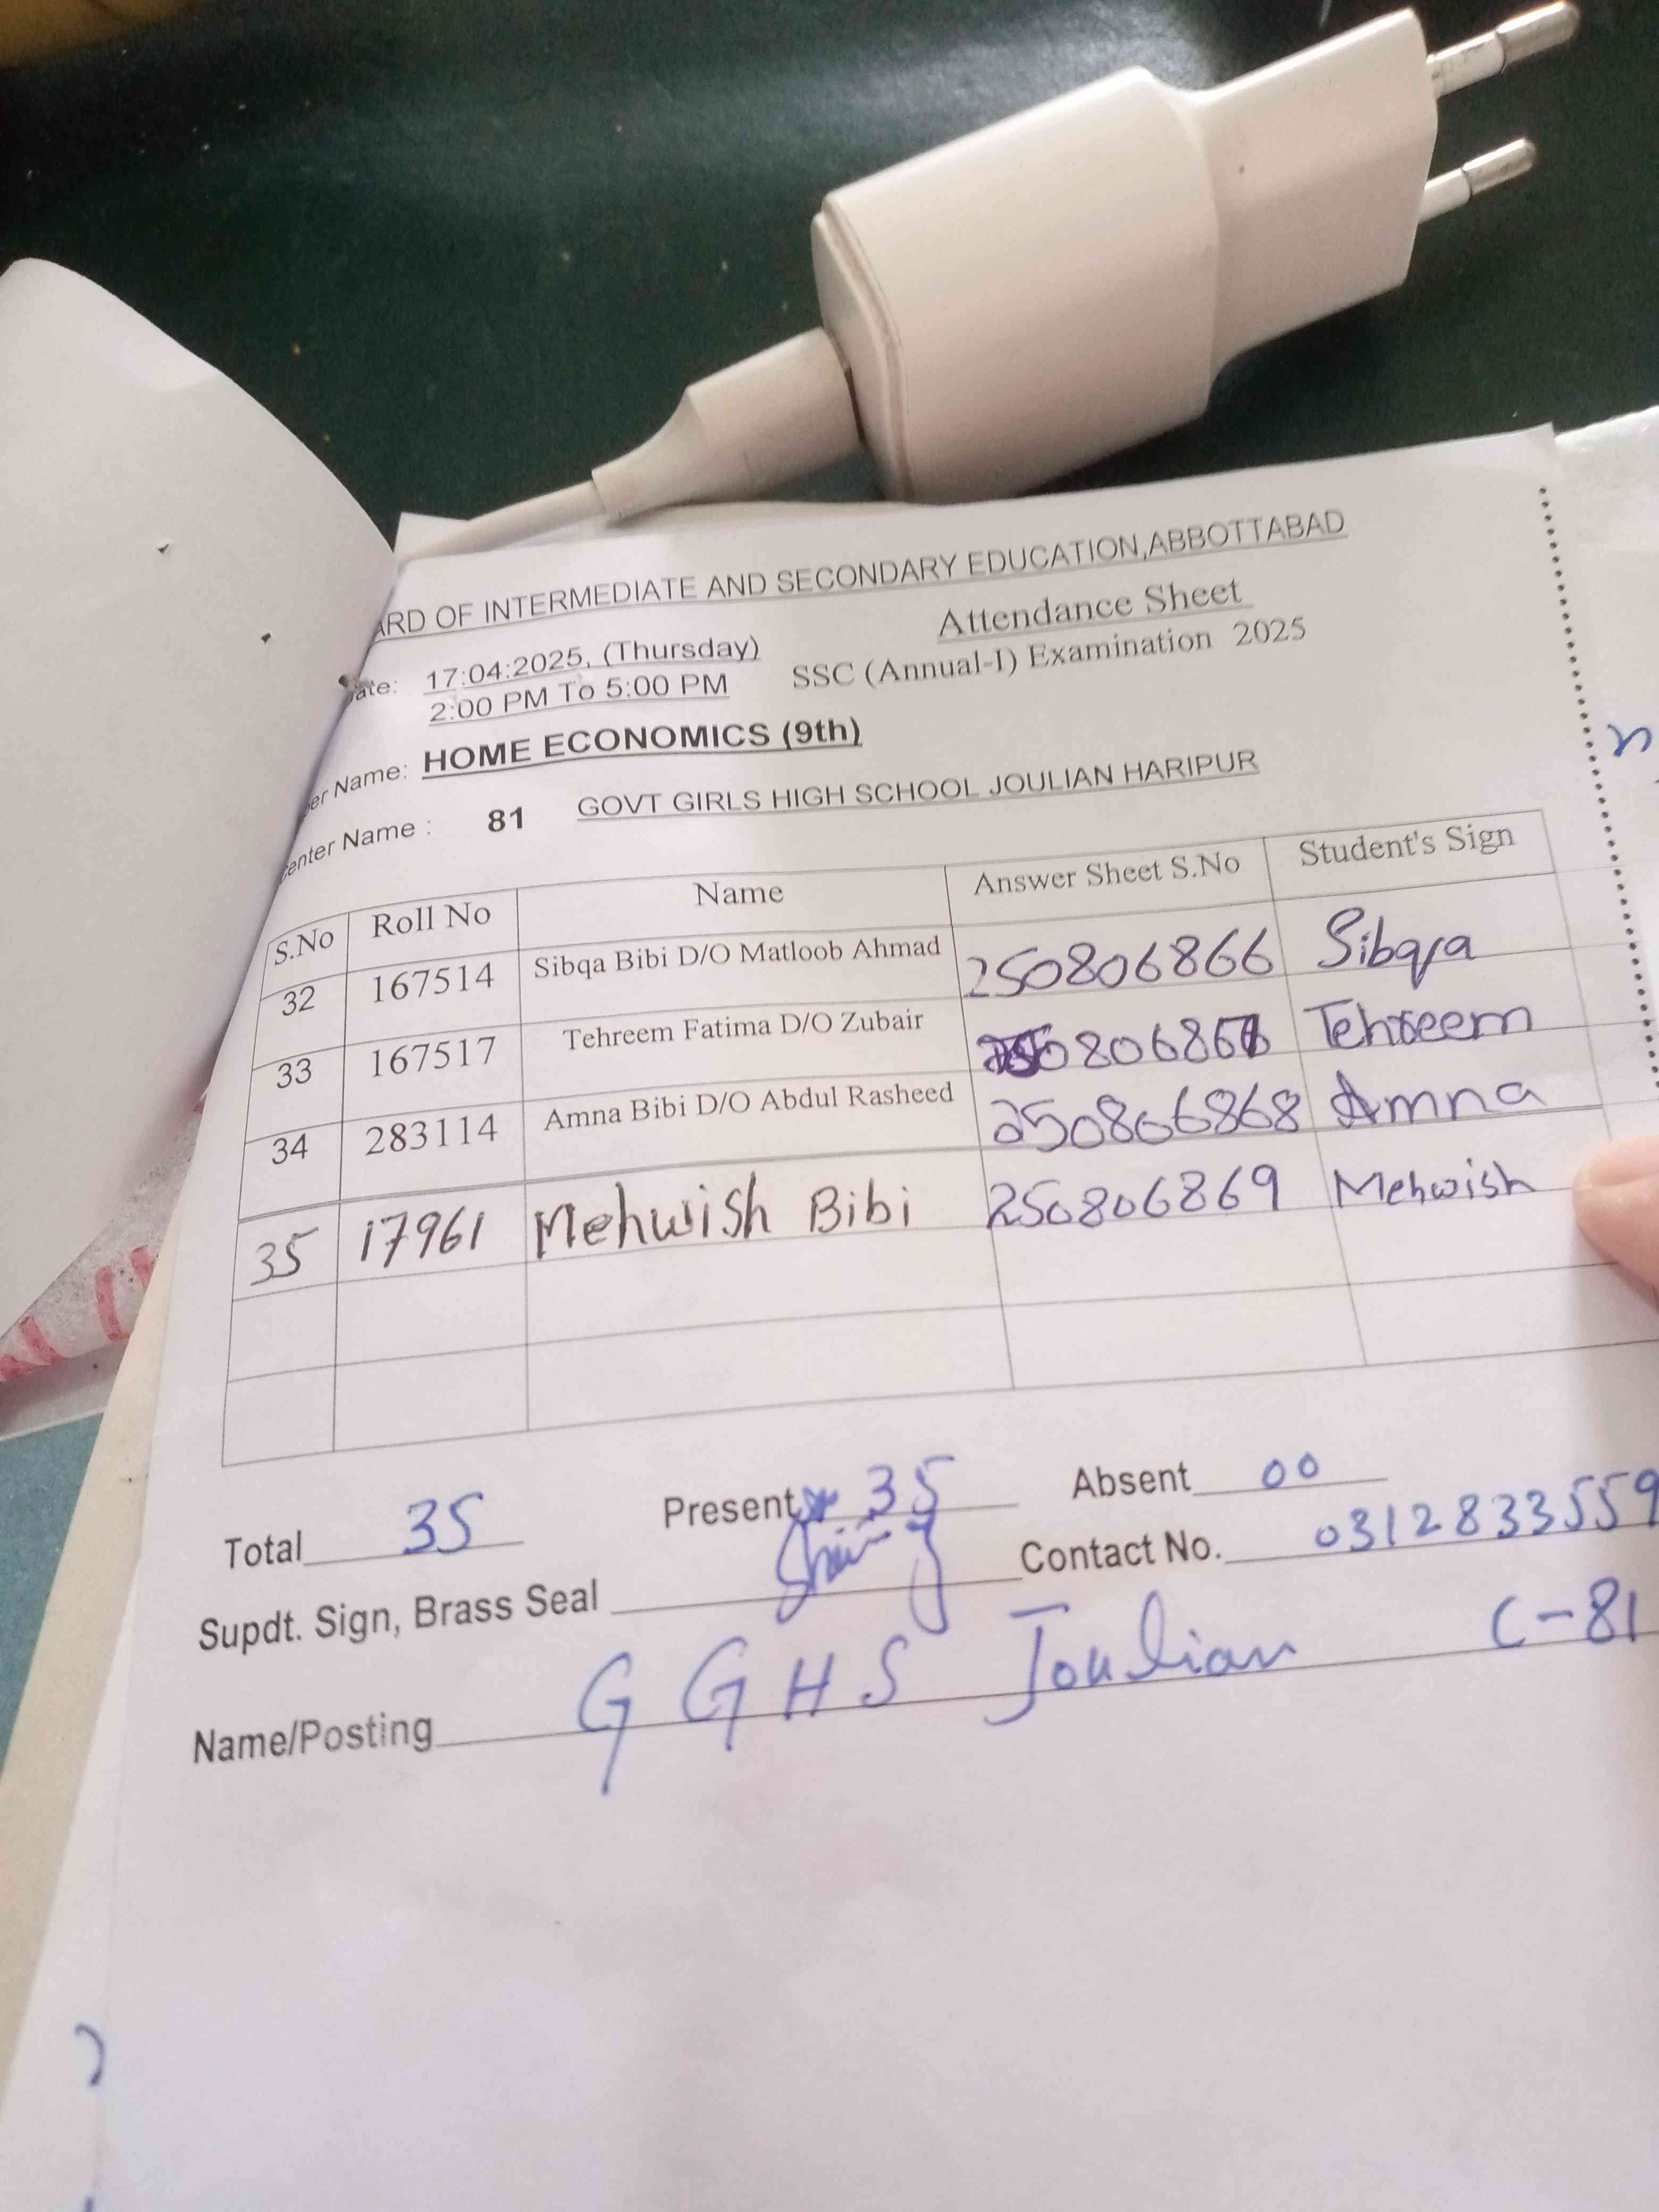 ARD OF INTERMEDIATE AND SECONDARY EDUCATION,ABBOTTABAD
Attendance Sheet
ate: 17:04:2025, (Thursday) SSC (Annual-I) Examination 2025
2:00 PM To 5:00 PM
er Name: HOME ECONOMICS (9th)
enter Name : 81 GOVT GIRLS HIGH SCHOOL JOULIAN HARIPUR
S.No Roll No Name Answer Sheet S.No Student's Sign
32 167514 Sibqa Bibi D/O Matloob Ahmad 250806866 Sibqa
33 167517 Tehreem Fatima D/O Zubair Tehreem
34 283114 Amna Bibi D/O Abdul Rasheed 250806868 Amna
35 17961 Mehwish Bibi 250806869 Mehwish
Total 35 Present 35 Absent 00
Supdt. Sign, Brass Seal Contact No. 0312833559
Name/Posting G G H S Joulian C-81